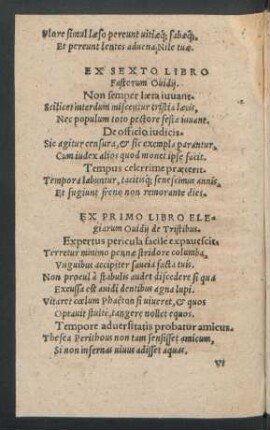 Flore simul læso pereunt uitiæq́;, fabæq́;,
Et pereunt lentes aduena, Nile tuæ.
EX SEXTO LIBRO
Fastorum Ouidij.
Non semper læta iuuant.
Scilicet interdum miscentur tristia lætis,
Nec populum toto pectore festa iuuant.
De officio iudicis.
Sic agitur censura, & sic exempla parantur,
Cum iudex alios quod monet ipse facit.
Tempus celerrime præterit.
Tempora labuntur, tacitisq́; senescimus annis,
Et fugiunt freno non remorante dies.
EX PRIMO LIBRO ELE-
giarum Ouidij de Tristibus.
Expertus pericula facile expauescit.
Terretur minimo pennæ stridore columba,
Vnguibus accipiter saucia facta tuis.
Non procul à stabulis audet discedere si qua
Excussa est auidi dentibus agna lupi.
Vitaret cœlum Phaëton si uiueret, & quos
Optauit stultè, tangere nollet equos.
Tempore aduersitatis probatur amicus.
Thesea Perithous non tam sensisset amicum,
Si non infernas uiuus adisset aquas.
Vt